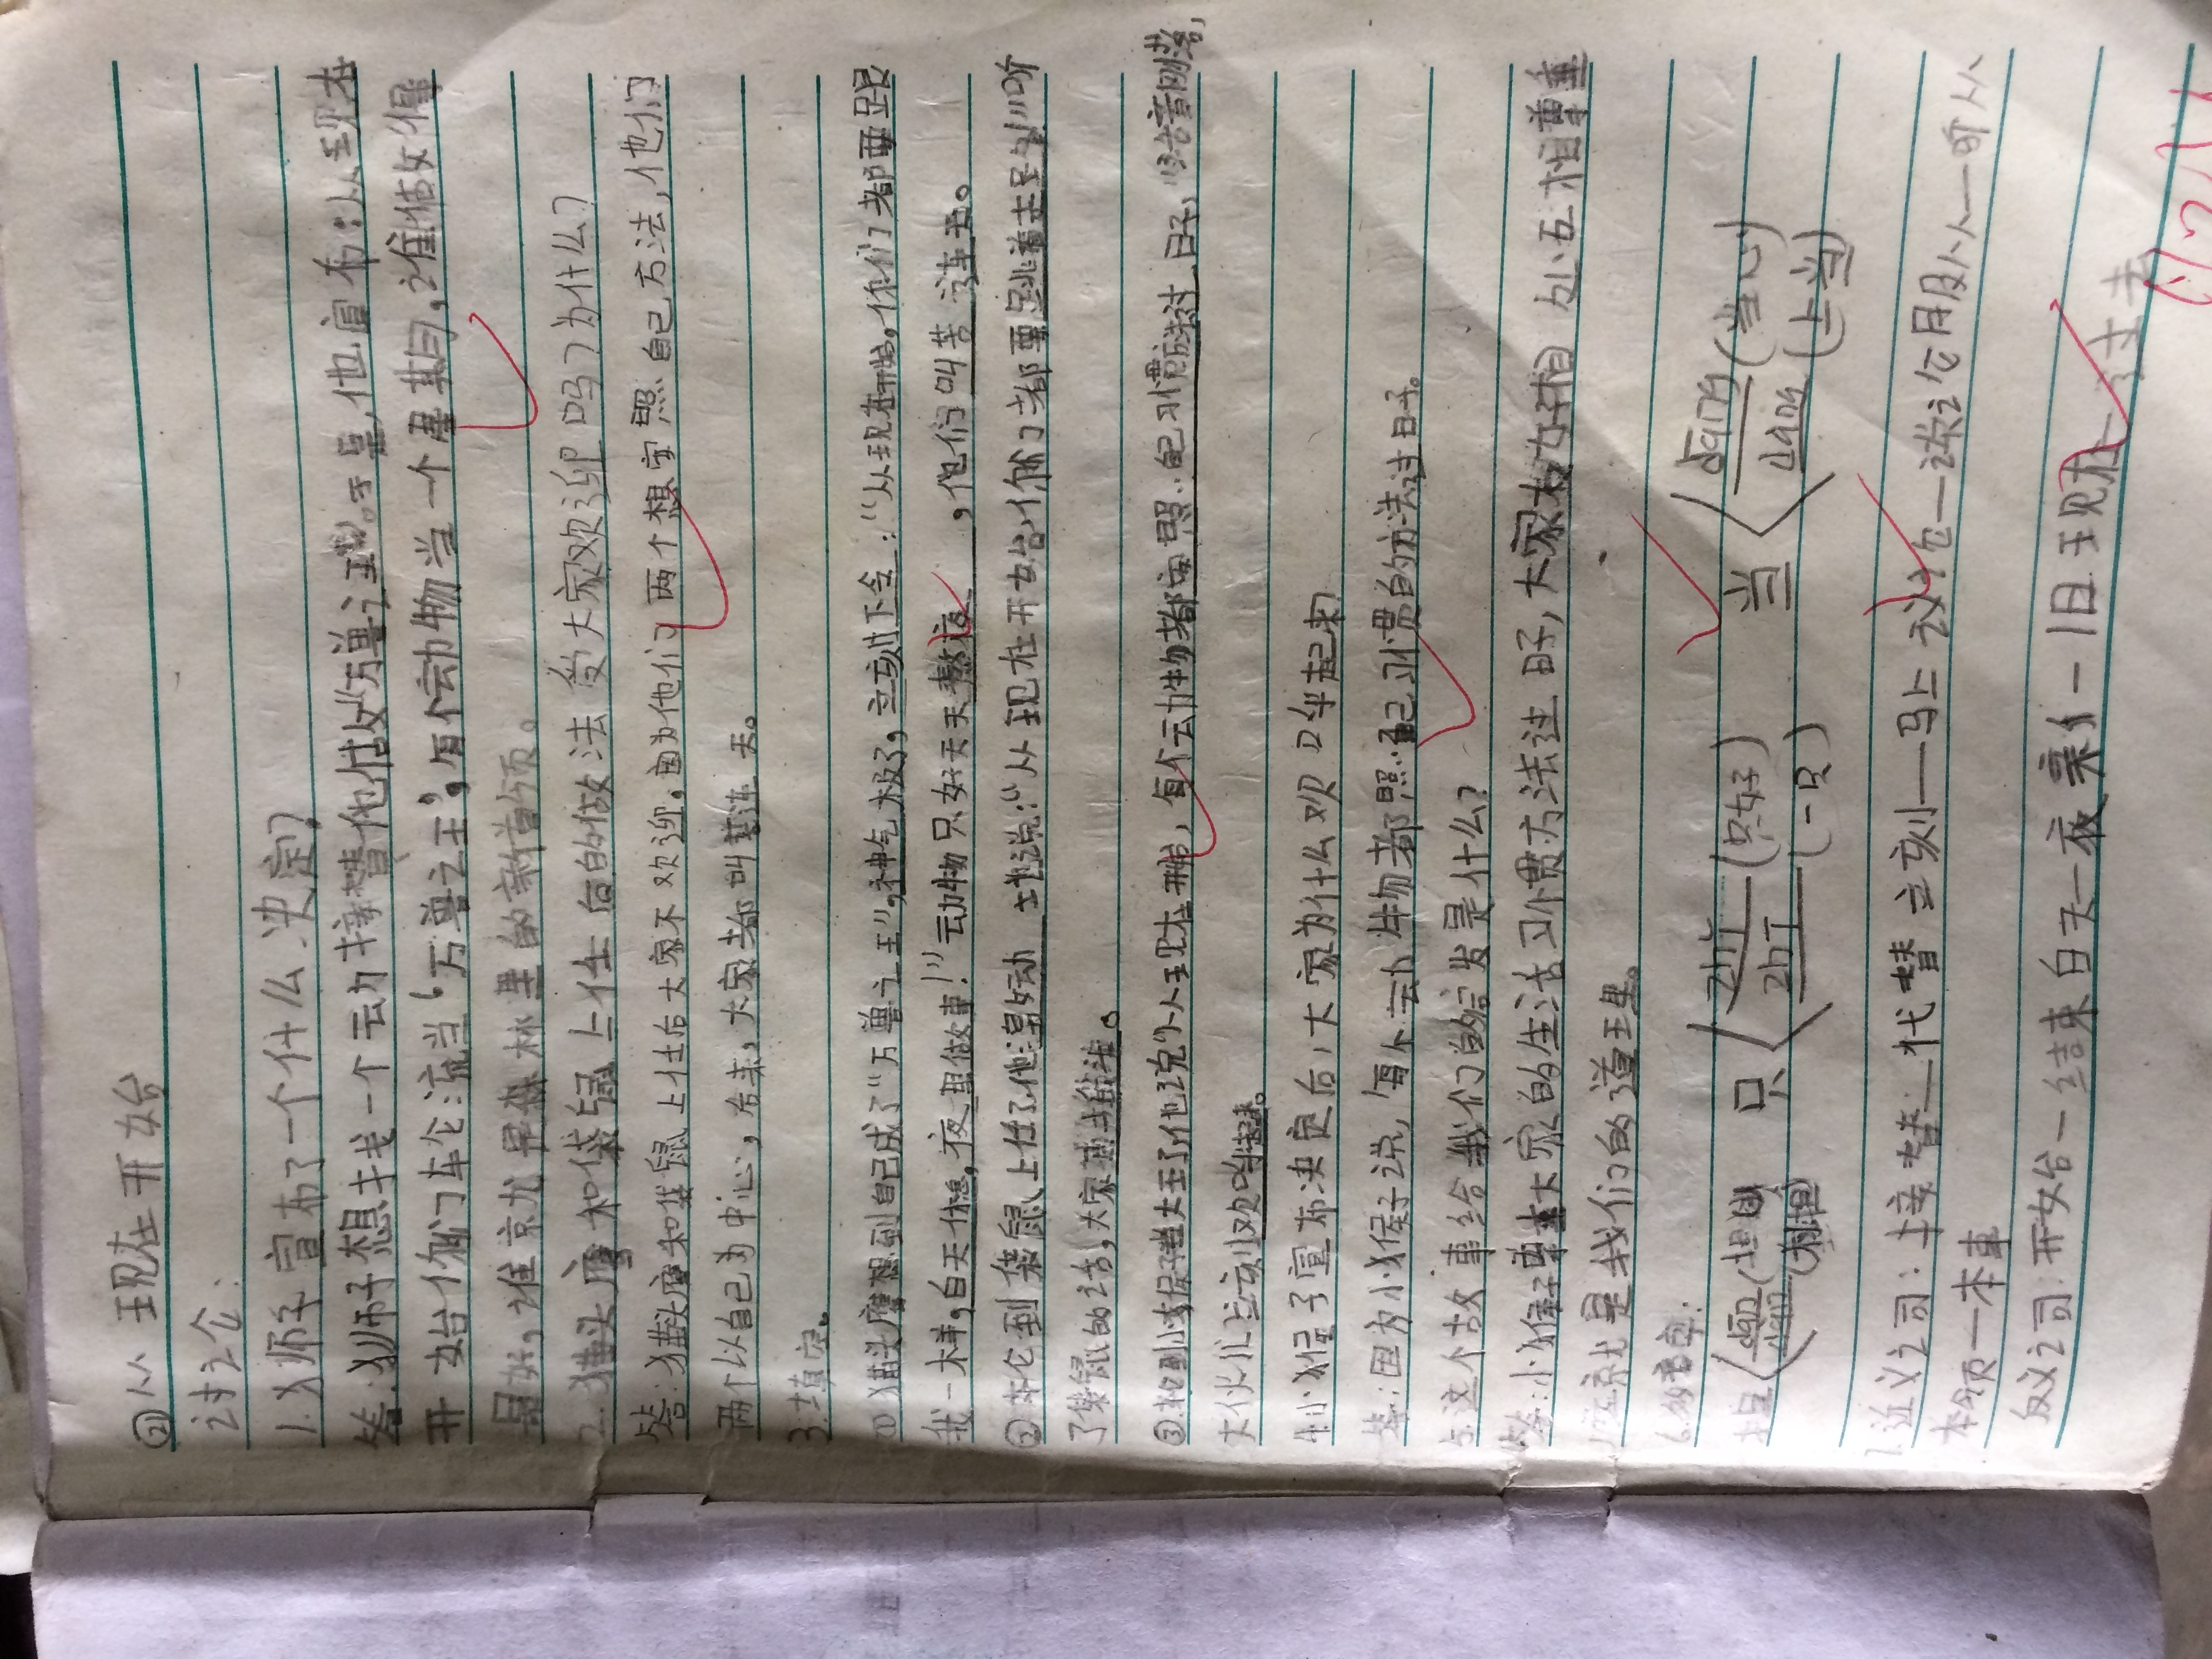 ㉑从现在开始
讨论:
1.狮子宣布了一个什么决定?
答:狮子想找一个动物接替他做“万兽之王”。于是,他宣布:从现在
开始你们轮流当“万兽之王”,每个动物当一个星期,谁做得
最好,谁就是森林里的新首领。
2.猫头鹰和袋鼠上任后的做法受大家欢迎吗?为什么?
答:猫头鹰和袋鼠上任后大家不欢迎,因为他们两个想字照自己方法,他们
两个以自己为中心,后来,大家都叫苦连天。
3.填空。
①猫头鹰想到自己成了“万兽之王”,神气极了,立刻下令:“从现在开始,你们都要跟
我一样,白天休息,夜里做事!”动物只好天天熬夜,他们叫苦连天。
②轮到袋鼠上任了他激动地说:“从现在开始,你们都要跳着走路”听
了袋鼠的话,大家
③轮到小猴子当大王了他说“从现在开始,每个动物都 照自己习惯 过日子,”话音刚落,
大伙儿立刻欢呼起来。
4.小猴子宣布决定后,大家为什么欢呼起来?
答:因为小猴子说,每个动物都照自己习惯的方法过日子。
5.这个故事给我们的启发是什么?
答:小猴子要大家的生活习惯方法过日子,大家 好相处,互相尊重
这就是我们的道理。
6.多音字:
担 dān(担 只 zhǐ(只好) 当 dāng(当心)
zhī(一只) dàng(上当)
7.近义词:接替—代替 立刻—马上 议论—谈论
本领—本事
反义词:开始—结束 白天—夜 —旧 现在—过去